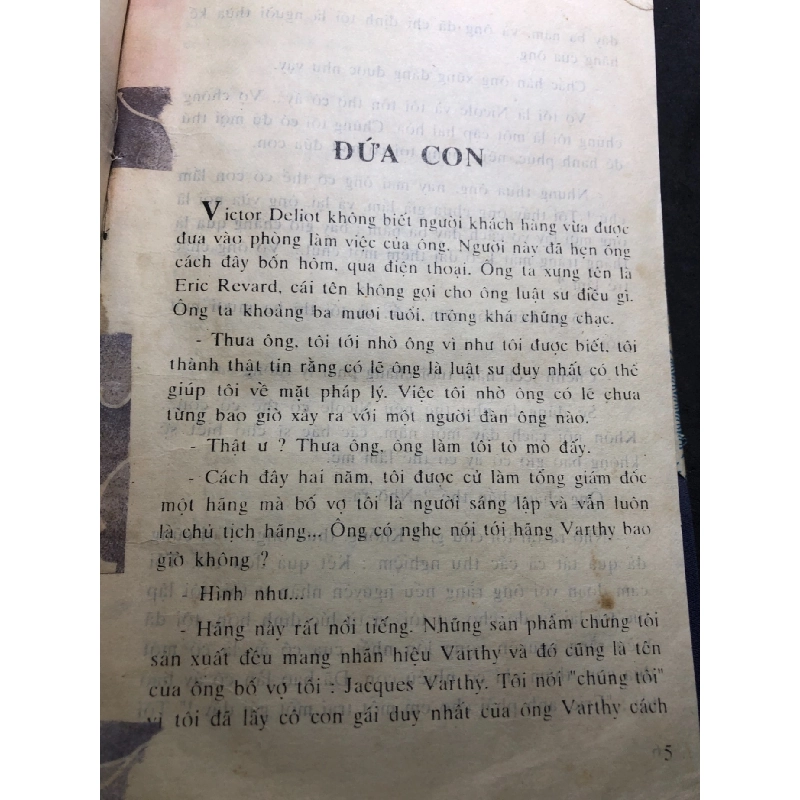 ĐỨA CON
Victor Deliot không biết người khách hàng vừa được
đưa vào phòng làm việc của ông. Người này đã hẹn ông
cách đây bốn hôm, qua điện thoại. Ông ta xưng tên là
Eric Revard, cái tên không gọi cho ông luật sư điều gì.
Ông ta khoảng ba mươi tuổi, trông khá chững chạc.
- Thưa ông, tôi tới nhờ ông vì như tôi được biết, tôi
thành thật tin rằng có lẽ ông là luật sư duy nhất có thể
giúp tôi về mặt pháp lý. Việc tôi nhờ ông có lẽ chưa
từng bao giờ xảy ra với một người đàn ông nào.
- Thật ư ? Thưa ông, ông làm tôi tò mò đấy.
- Cách đây hai năm, tôi được cử làm tổng giám đốc
một hãng mà bố vợ tôi là người sáng lập và vẫn luôn
là chủ tịch hãng... Ông có nghe nói tới hãng Varthy bao
giờ không ?
- Hình như...
- Hãng này rất nổi tiếng. Những sản phẩm chúng tôi
sản xuất đều mang nhãn hiệu Varthy và đó cũng là tên
của ông bố vợ tôi : Jacques Varthy. Tôi nói "chúng tôi"
vì tôi đã lấy cô con gái duy nhất của ông Varthy cách
5